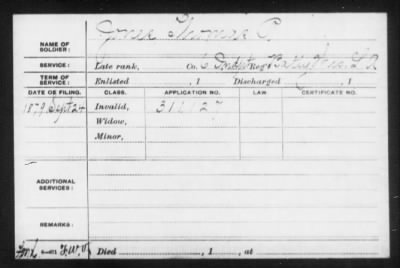 NAME OF SOLDIER: Thomas C.
SERVICE: Late rank, Co. Reg't
TERM OF SERVICE: Enlisted , 1 Discharged , 1
DATE OF FILING. CLASS. APPLICATION NO. LAW. CERTIFICATE NO.
1879 Sept 24 Invalid, 311127
Widow,
Minor,
ADDITIONAL SERVICES:
REMARKS:
Died , 1 , at